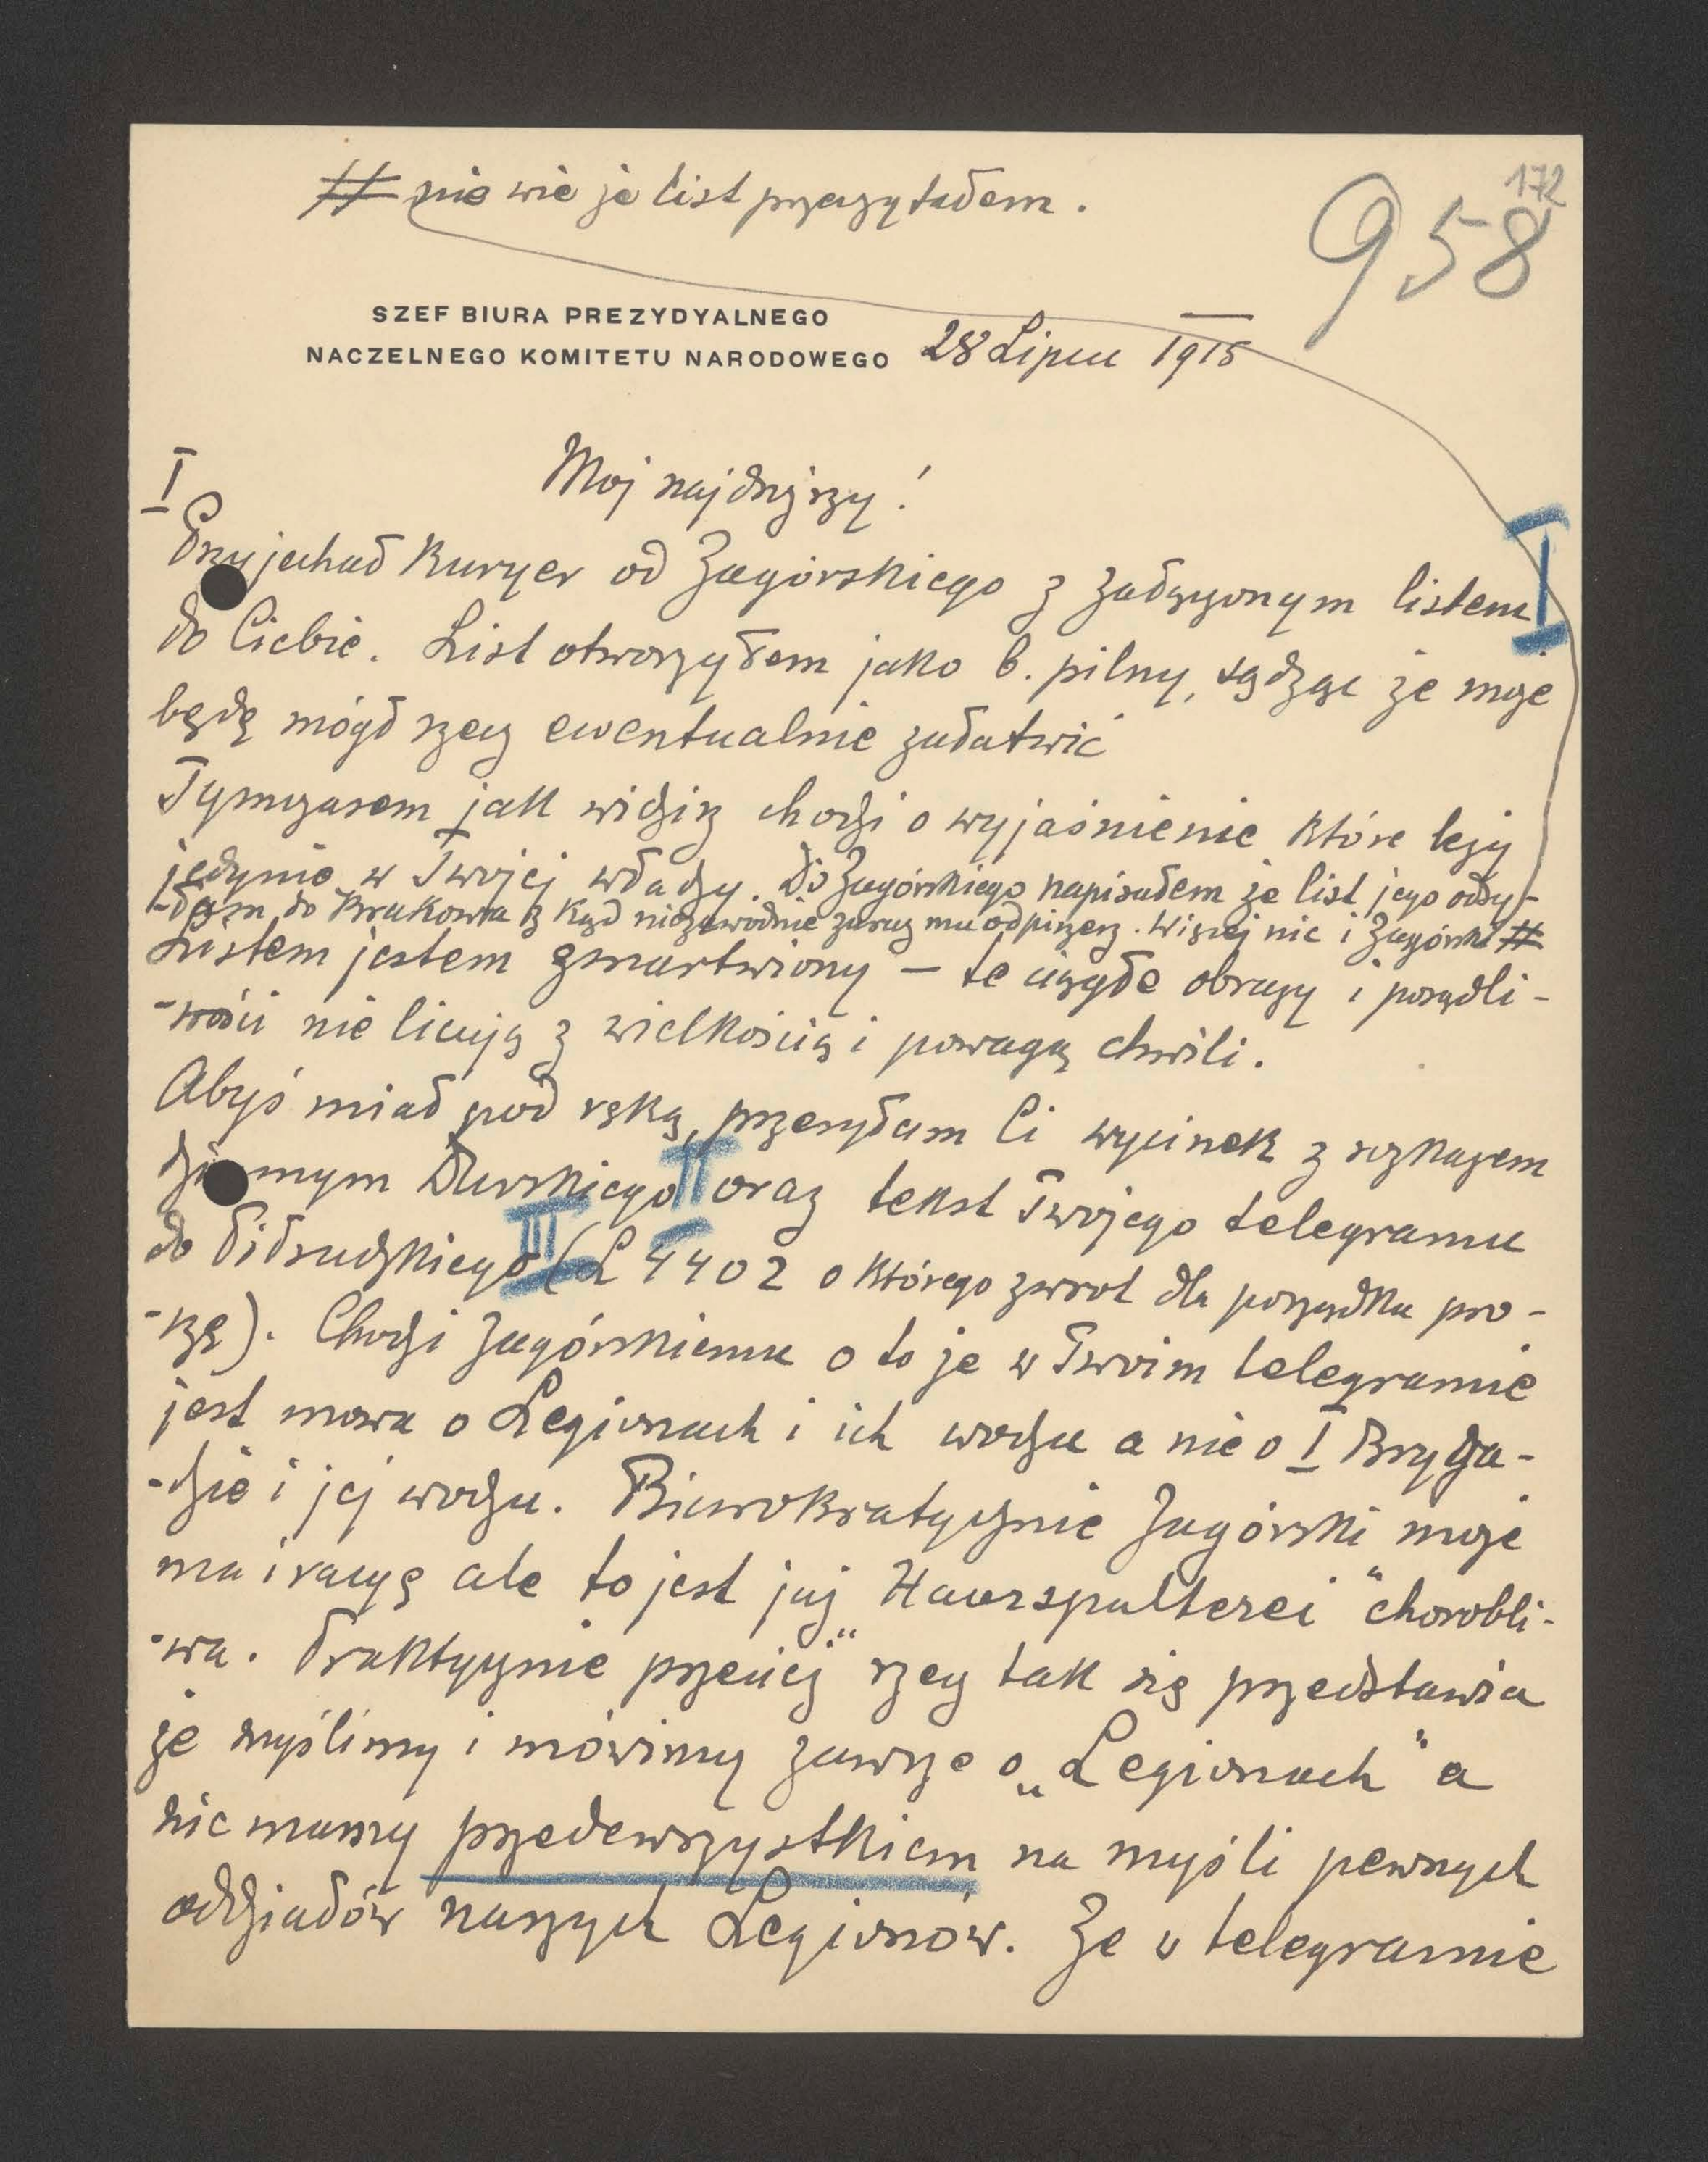 172
# nie wie że list przeczytałem.
958
SZEF BIURA PREZYDYALNEGO
NACZELNEGO KOMITETU NARODOWEGO
28 Lipca 1915
Moj najdrższy!
I
Przyjechał Kuryer od Zagórskiego z załączonym listem I
do Ciebie. List otworzyłem jako b. pilny, sądząc że może
będę mógł rzecz ewentualnie załatwić
Tymczasem jak widzisz chodzi o wyjaśnienie które leży
jedynie w Twojej władzy. Do Zagórskiego napisałem że list jego odsy-
-łam do Krakowa z kąd niezawodnie zaraz mu odpiszesz. Więcej nic i Zagórski #
Listem jestem zmartwiony – te ciągłe obrazy i porządli-
-wości nie licują z wielkością i powagą chwili.
Abyś miał pod ręką, przesyłam Ci wycinek z rozkazem
dziennym Durskiego II oraz tekst Twojego telegramu
do Piłsudzkiego III (L 4402 o którego zwrot dla porządku pro-
-szę). Chodzi Zagórskiemu o to że w Twoim telegramie
jest mowa o Legionach i ich wodzu a nie o I Bryga-
-dzie i jej wodzu. Biurokratycznie Zagórski może
ma i racyę ale to jest już „Haarspalterei" chorobli-
-wa. Praktycznie przecież rzecz tak się przedstawia
że myślimy i mówimy zawsze o „Legionach" a
nie mamy przedewszystkiem na myśli pewnych
oddziałów naszych Legionów. Że w telegramie